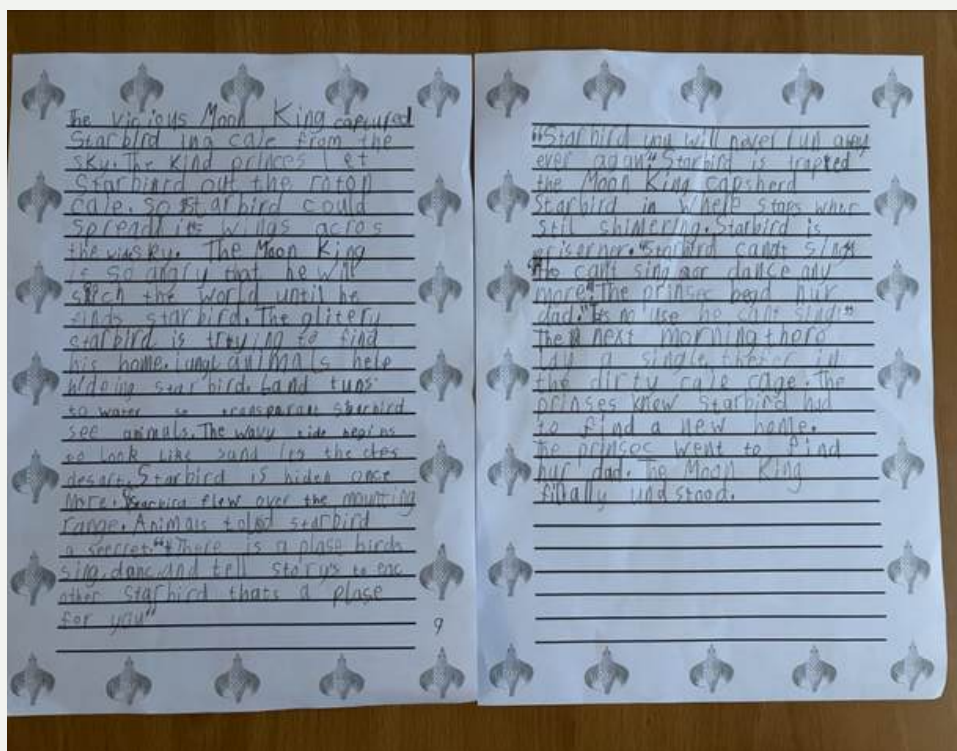 The vicious Moon King captured
Starbird ing cale from the
sky. The kind princes let
Starbird out the
cale. so starbird could
spread its wings acros
the sky. The Moon King
is so angry that he will
serch the world until he
finds starbird. The glitery
starbird is trying to find
his home. animals help
hideing star bird. Land tuns
to water so transparant starbird
see animals. The wavy tide begins
to look like sand its the
desart. Starbird is hiden once
more. Starbird flew over the mounting
range. Animals told starbird
a seecret. "There is a plase birds
sing, danc, and tell story's to eac
other starbird thats a plase
for you"
9
"Starbird you will never run away
ever again" Starbird is trapted
the Moon King capsherd
Starbird in where stops
stil shimering. Starbird is
priserner. "Starbird candt sing"
He cant sing nor dance any
more". The prinsec begd hur
dad. "Its no use he cant sing"
The next morning there
lay a single, fheter in
the dirty cale cage. The
prinses knew Starbird had
to find a new home.
The prinsec went to find
hur dad. The Moon King
finally undstood.